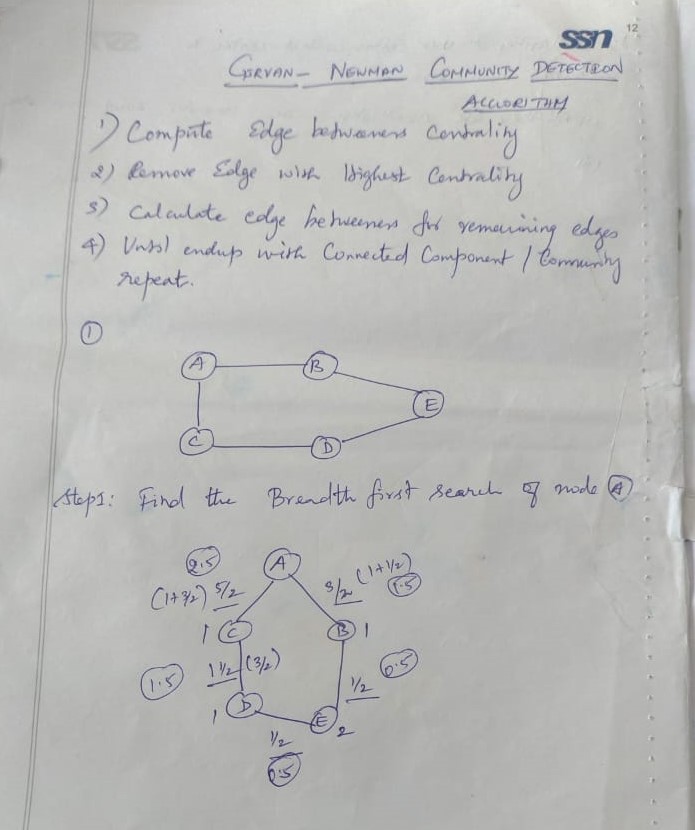 ssn
12
GIRVAN - NEWMAN COMMUNITY DETECTION
ALGORITHM
1) Compute Edge betweeness Centrality
2) Remove Edge with Highest Centrality
3) Calculate edge betweeness for remaining edges
4) Until endup with Connected Component / Community
repeat.
①
A B
E
C D
Step1: Find the Breadth first search of node A
2.5 A
(1+3/2) 5/2 3/2 (1+1/2) 1.5
1 C B 1
1.5 1 1/2 (3/2) 1/2 0.5
1 D E 2
1/2
0.5